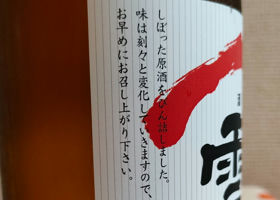 しぼった原酒をびん詰しました。
味は刻々と変化していきますので、
お早めにお召し上がり下さい。